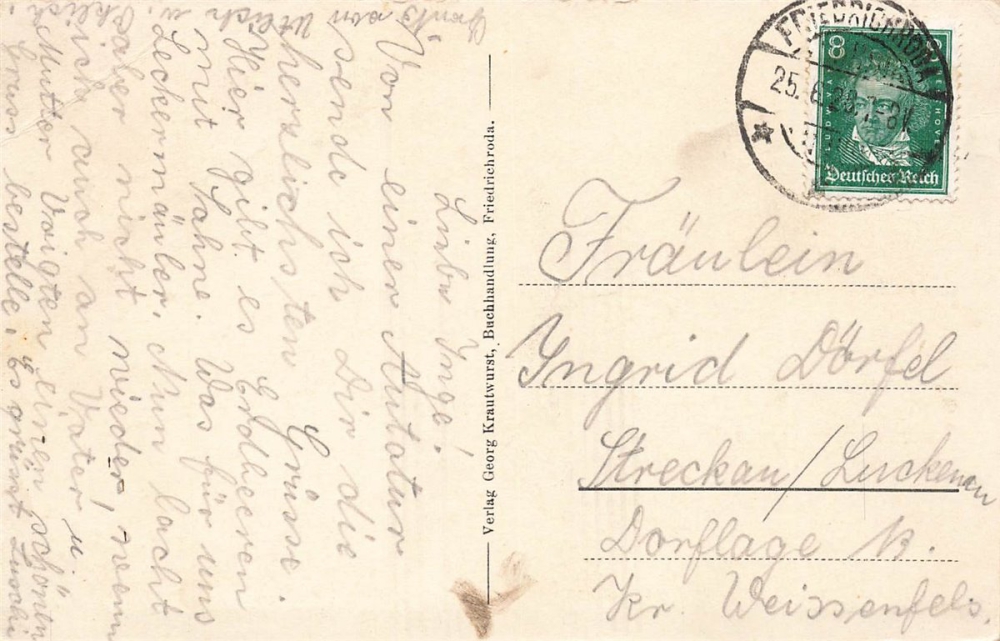 Liebe Inge!
Von einer Autotur
sende ich Dir die
herzlichsten Grüsse.
Hier gibt es Erdbeeren
mit Sahne. Was für uns
Leckermäuler. Nun lacht
aber nicht wieder, wenn
ich auch an Vater u.
Mutter Voigten einen schönen
Gruss bestelle. Es grüsst
Verlag Georg Krautwurst, Buchhandlung, Friedrichroda.
FRIEDRICHRODA
25.6.28
8
LUDWIG VAN BEETHOVEN
Deutsches Reich
Fräulein
Ingrid Dörfel
Streckau/Luckenau
Dorflage 13.
Kr. Weissenfels.